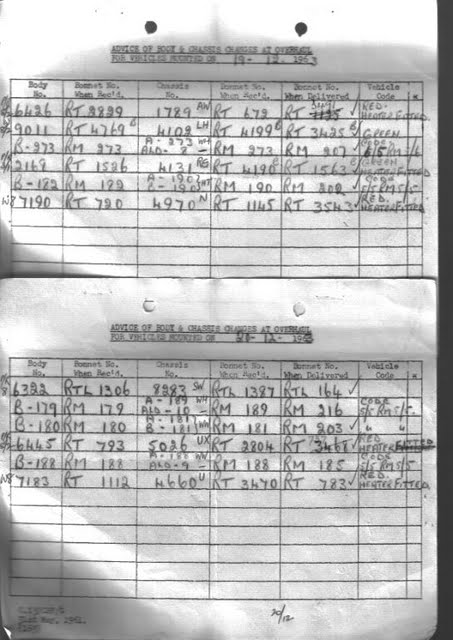 ADVICE OF BODY & CHASSIS CHANGES AT OVERHAUL
FOR VEHICLES MOUNTED ON 19 - 12 . 1963
Body No. Bonnet No. When Rec'd. Chassis No. Bonnet No. When Rec'd. Bonnet No. When Delivered Vehicle Code *
6426 RT 2829 1789 AW RT 672 RT RED. HEATER FITTED
9011 RT 4769 4102 LH RT 4199 RT 3425 GREEN
B-273 RM 273 A - 273 WH ALD-8 - RM 273 RM 207 CODE
2169 RT 1526 4131 RG RT 4190 RT 1563 GREEN HEATER FITTED
B-182 RM 182 A - 190 B - 190 RM 190 RM 202 CODE S/S RM5/5
W8 7190 RT 720 4970 N RT 1145 RT 3543 RED. HEATER FITTED
ADVICE OF BODY & CHASSIS CHANGES AT OVERHAUL
FOR VEHICLES MOUNTED ON 20 - 12 - 1963
Body No. Bonnet No. When Rec'd. Chassis No. Bonnet No. When Rec'd. Bonnet No. When Delivered Vehicle Code *
6322 RTL 1306 8287 SW RTL 1387 RTL 164
B-179 RM 179 A - 189 WH ALD-10 - RM 189 RM 216 CODE S/S RM5/5.
B-180 RM 180 A - 181 B - 181 WH RM 181 RM 203 " "
6445 RT 793 5026 UX RT 2804 RT RED HEATER FITTED
B-188 RM 188 A - 188 ALD-9 - RM 188 RM 185 CODE S/S RM5/5
W8 7183 RT 1112 4660 U RT 3470 RT 783 RED. HEATER FITTED
31st May, 1961.
20/12